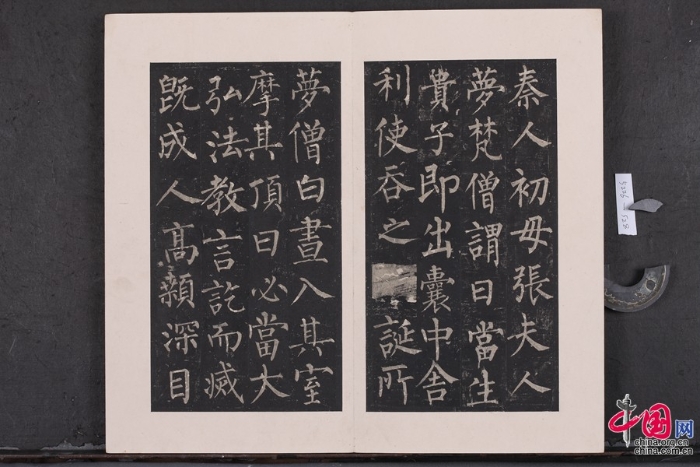 秦人初母張夫人
夢梵僧謂曰當生
貴子即出囊中舍
利使吞之誕所
夢僧白晝入其室
摩其頂曰必當大
弘法教言訖而滅
既成人高顙深目
中国网
china.org.cn
china.com.cn